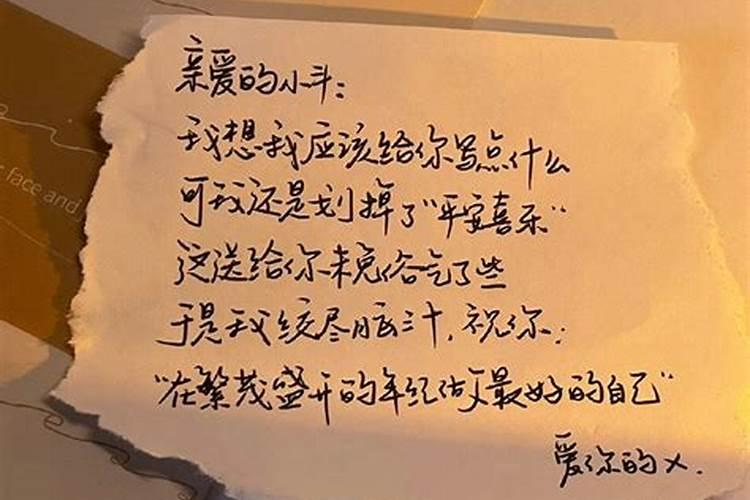 亲爱的小斗：
我想我应该给你写点什么
可我还是划掉了"平安喜乐"
这送给你未免俗气了些
于是我绞尽脑汁，祝你：
"在繁茂盛开的年纪做最好的自己"
爱你的X.
face and